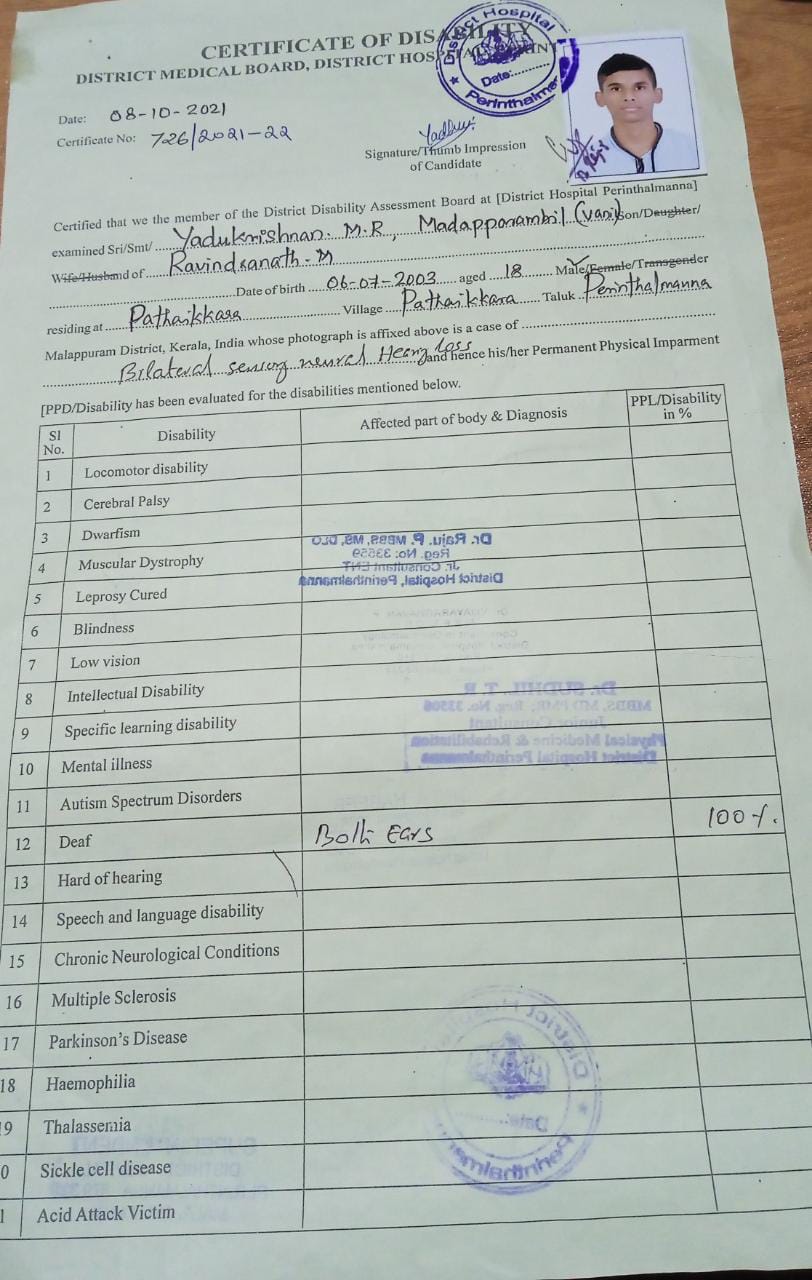 CERTIFICATE OF DISABILITY
DISTRICT MEDICAL BOARD, DISTRICT HOSPITAL
District Hospital
Date:
Perinthalmanna
Date: 08-10-2021
Certificate No: 726/2021-22
Yadhu
Signature/Thumb Impression
of Candidate
Certified that we the member of the District Disability Assessment Board at [District Hospital Perinthalmanna]
examined Sri/Smt/ Yadukrishnan. M.R, Madapparambil (Vani) Son/Daughter/
Wife/Husband of Ravindranath-M
Date of birth 06-07-2003 aged 18 Male/Female/Transgender
residing at Pathaikkara Village Pathaikkara Taluk Perinthalmanna
Malappuram District, Kerala, India whose photograph is affixed above is a case of
Bilateral sensory neural Hearing loss and hence his/her Permanent Physical Imparment
[PPD/Disability has been evaluated for the disabilities mentioned below.
Sl No. Disability Affected part of body & Diagnosis PPL/Disability in %
1 Locomotor disability
2 Cerebral Palsy
3 Dwarfism
Dr. Raju. P. MBBS, MS, DLO
Reg. No: 33559
4 Muscular Dystrophy
Jr. Consultant ENT
District Hospital, Perinthalmanna
5 Leprosy Cured
6 Blindness
7 Low vision
8 Intellectual Disability
Dr. SUDHIL T R
9 Specific learning disability
Junior Consultant
Physical Medicine & Rehabilitation
10 Mental illness
District Hospital Perinthalmanna
11 Autism Spectrum Disorders
12 Deaf Both Ears 100%.
13 Hard of hearing
14 Speech and language disability
15 Chronic Neurological Conditions
16 Multiple Sclerosis
17 Parkinson's Disease
District Hospital
18 Haemophilia
9 Thalassemia
Date:
Perinthalmanna
0 Sickle cell disease
1 Acid Attack Victim